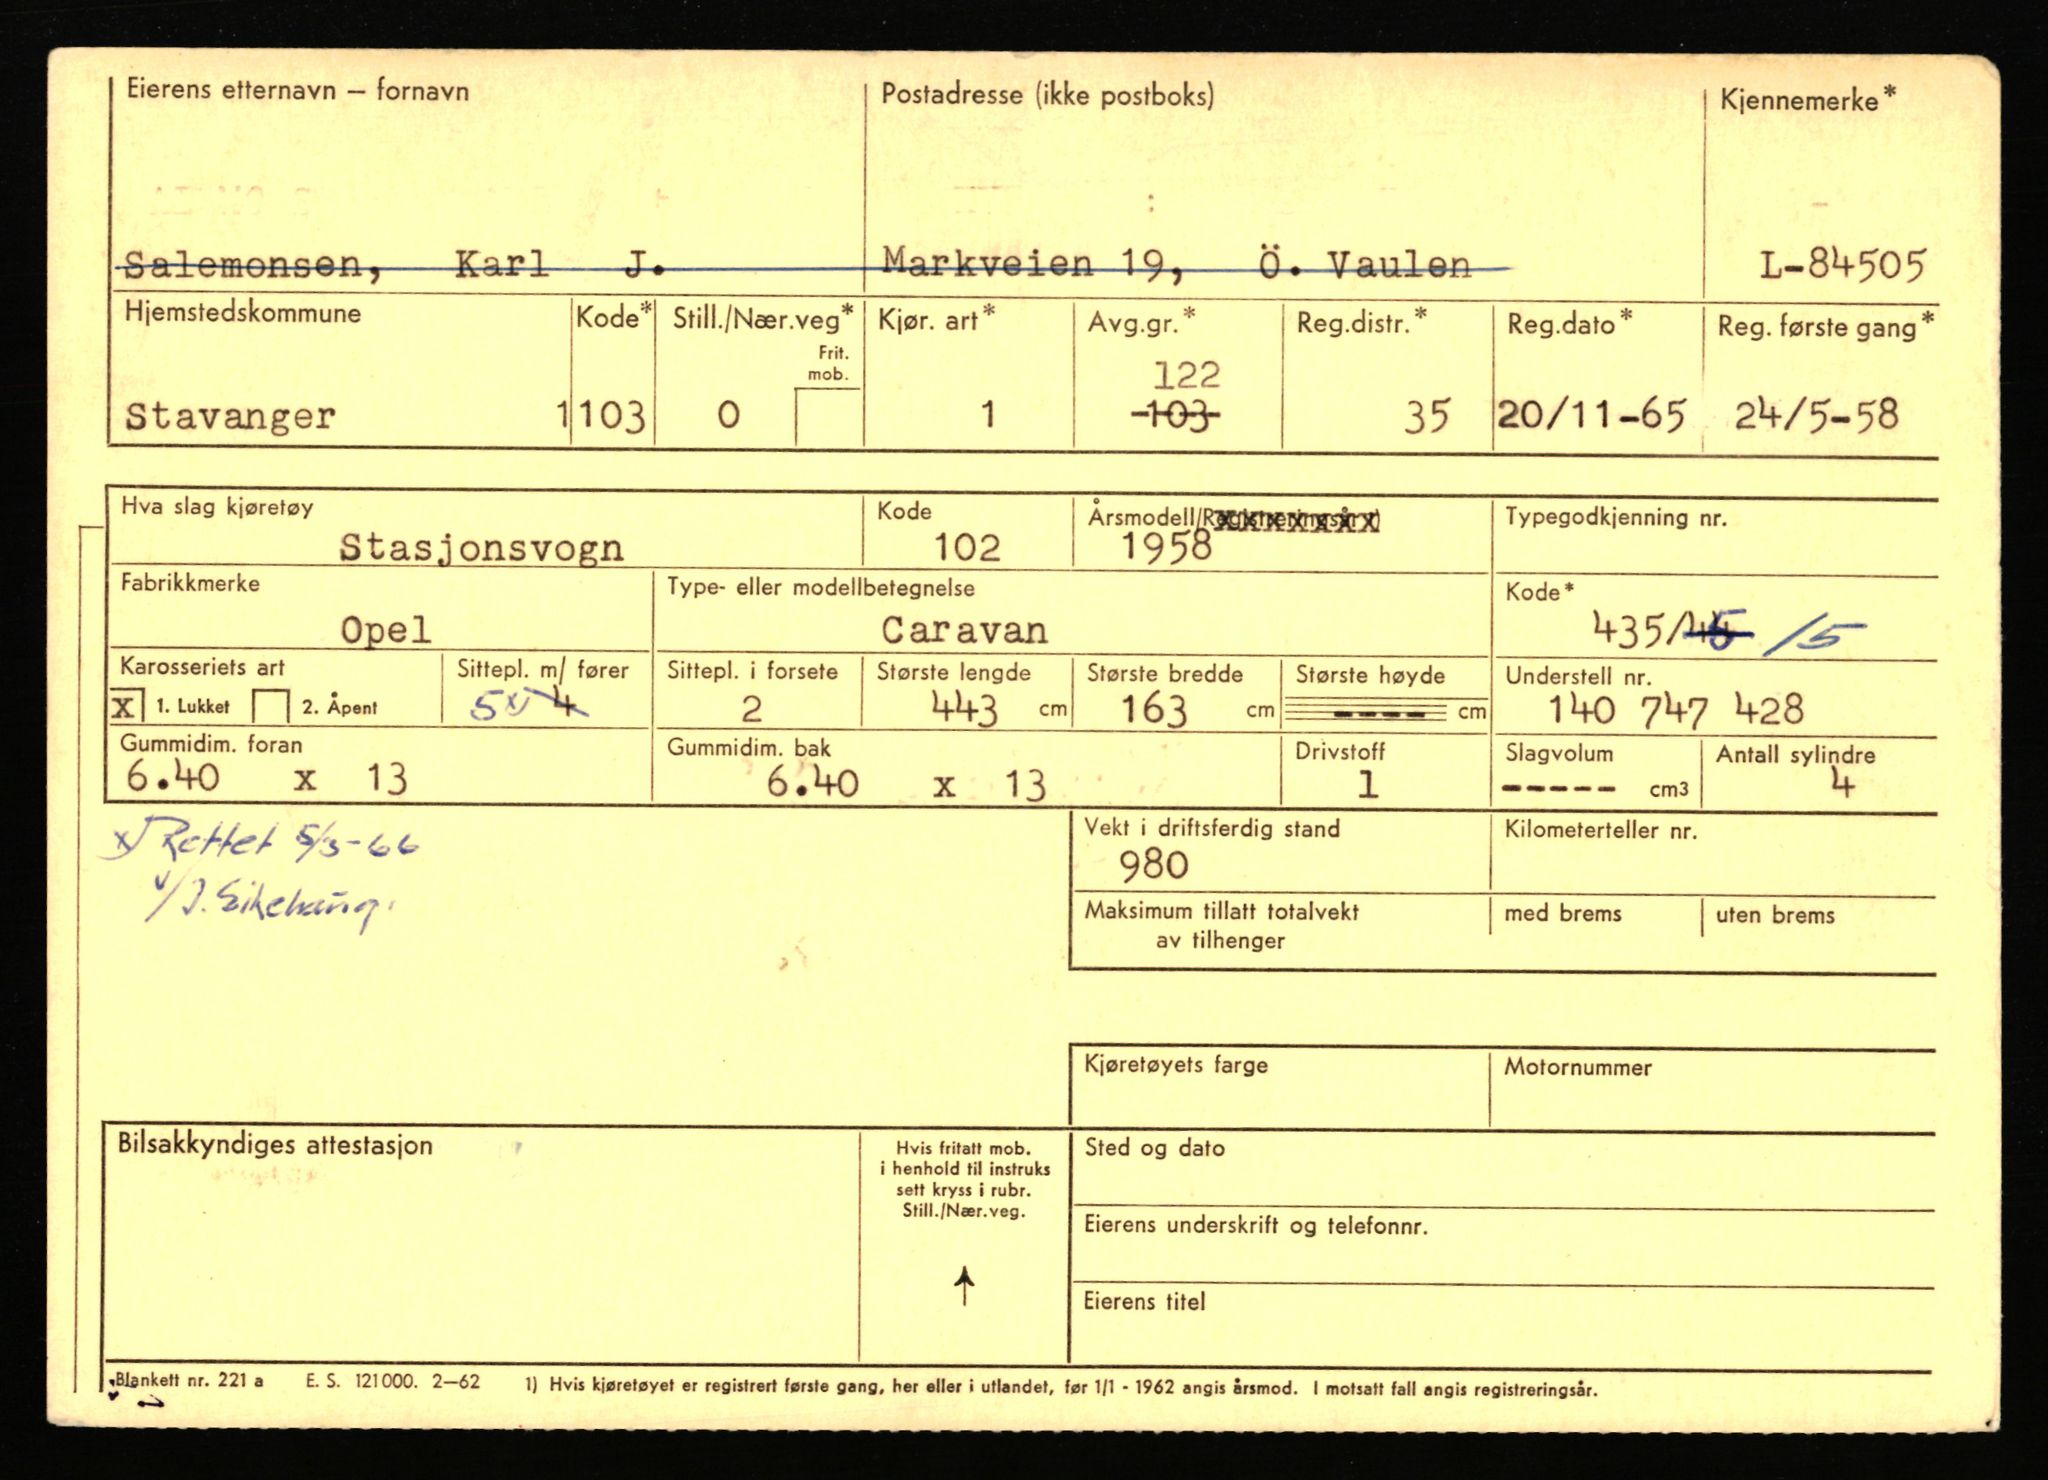 Eierens etternavn – fornavn Postadresse (ikke postboks) Kjennemerke*
Salemonsen, Karl J. Markveien 19, Ö. Vaulen L-84505
Hjemstedskommune Kode* Still./Nær.veg* Kjør. art* Avg.gr.* Reg.distr.* Reg.dato* Reg. første gang*
Frit.
mob.
122
Stavanger 1103 0 1 103 35 20/11-65 24/5-58
Hva slag kjøretøy Kode Årsmodell/(Registreringsår 1) Typegodkjenning nr.
Stasjonsvogn 102 1958
Fabrikkmerke Type- eller modellbetegnelse Kode*
Opel Caravan 435/ /5
Karosseriets art Sittepl. m/ fører Sittepl. i forsete Største lengde Største bredde Største høyde Understell nr.
X 1. Lukket 2. Åpent 5 x) 4 2 443 cm 163 cm ---- cm 140 747 428
Gummidim. foran Gummidim. bak Drivstoff Slagvolum Antall sylindre
6.40 x 13 6.40 x 13 1 ----- cm3 4
x) Rettet 5/3-66
v/J.
Vekt i driftsferdig stand Kilometerteller nr.
980
Maksimum tillatt totalvekt med brems uten brems
av tilhenger
Kjøretøyets farge Motornummer
Bilsakkyndiges attestasjon
Hvis fritatt mob.
i henhold til instruks
sett kryss i rubr.
Still./Nær.veg.
Sted og dato
Eierens underskrift og telefonnr.
Eierens titel
Blankett nr. 221 a E. S. 121000. 2–62 1) Hvis kjøretøyet er registrert første gang, her eller i utlandet, før 1/1 - 1962 angis årsmod. I motsatt fall angis registreringsår.